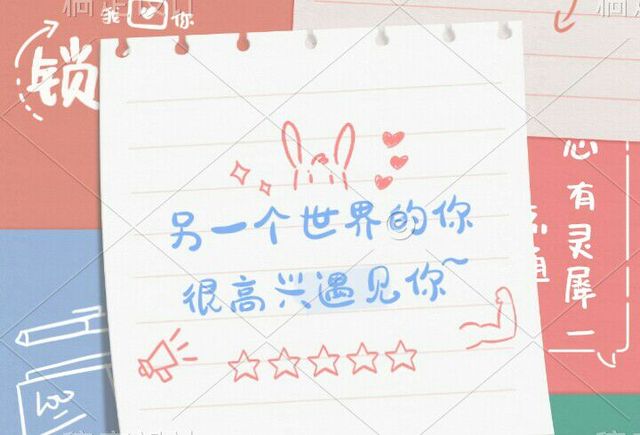 我 你
锁
另一个世界的你
很高兴遇见你~
心有灵犀二
通